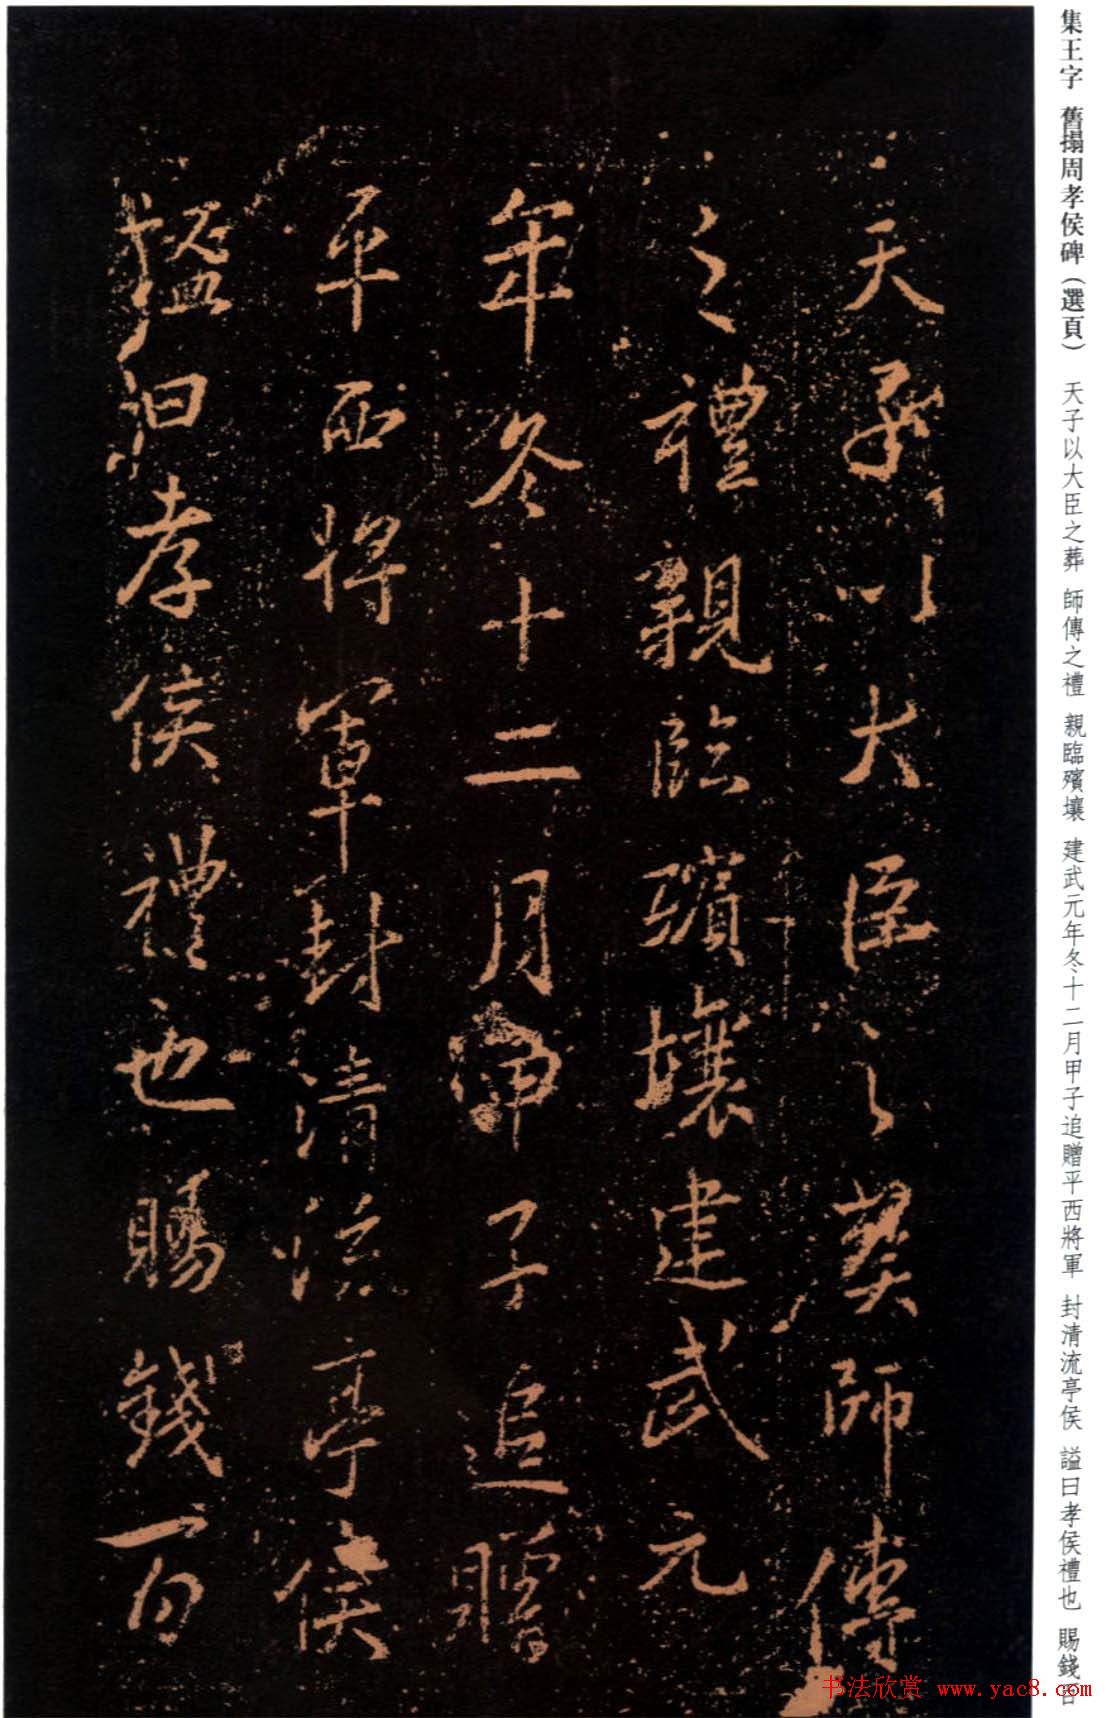 集王字 舊搨周孝侯碑（選頁） 天子以大臣之葬 師傅之禮 親臨殯壤 建武元年冬十二月甲子追贈平西將軍 封清流亭侯 謚曰孝侯禮也 賜錢百
天子以大臣之葬師傅
之禮親臨殯壤建武元
年冬十二月甲子追贈
平西將軍封清流亭侯
謚曰孝侯禮也賜錢百
书法欣赏 www.yac8.com